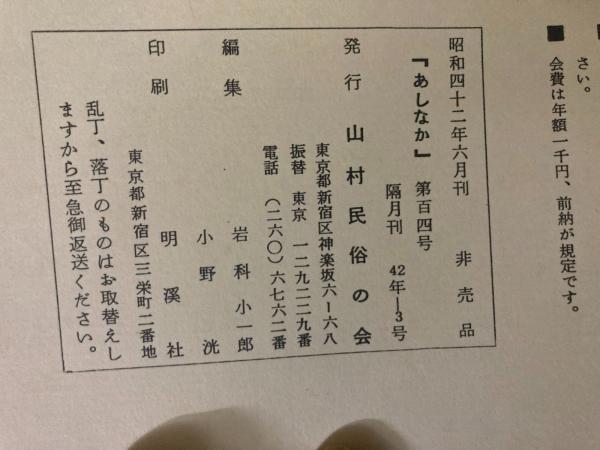 さい。
■ 会費は年額一千円、前納が規定です。
昭和四十二年六月刊 非売品
『あしなか』 第百四号
隔月刊 42年―3号
発行 山村民俗の会
東京都新宿区神楽坂六ー六八
振替 東京 一二九二二九番
電話 (二六〇)六七六二番
編集 岩科小一郎
小野洸
印刷 明溪社
東京都新宿区三栄町二番地
乱丁、落丁のものはお取替えし
ますから至急御返送ください。